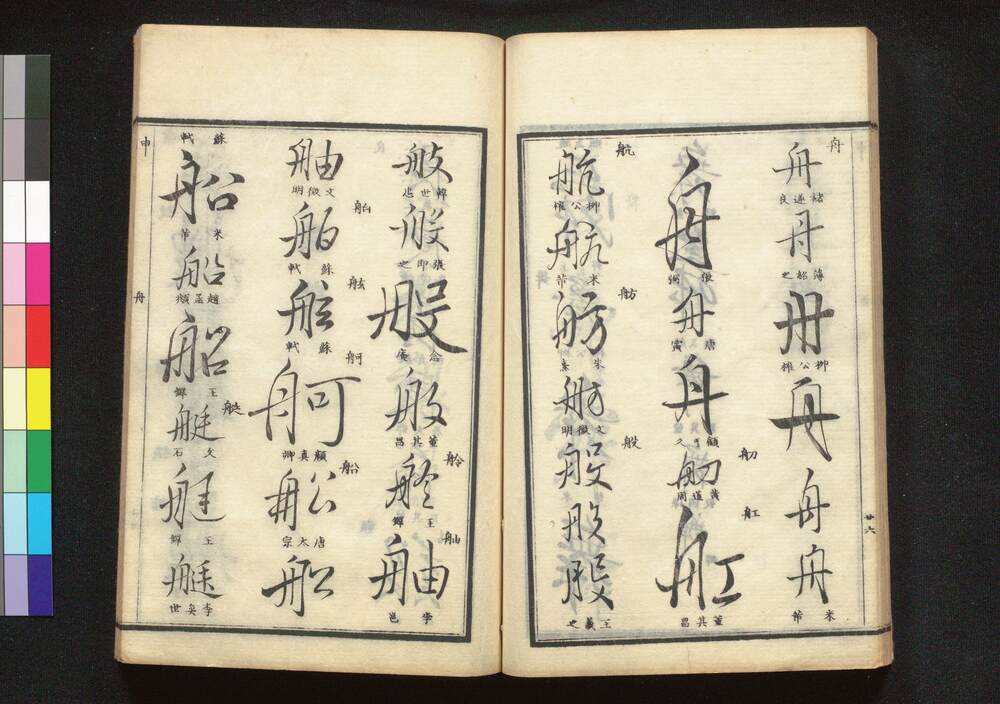 舟
舟
褚遂良
舟
薄紹之
舟
柳公權
舟
舟
舟
米芾
舟
張弼
舟
唐寅
舟
舠
舠
黃道周
舡
舡
董其昌
航
航
柳公權
航
米芾
舫
舫
朱熹
舫
文徵明
般
般
般
般
王羲之
廿六
般
般
張即之
般
般
董其昌
舲
舲
王鐸
舳
舳
李邕
舳
文徵明
舶
舶
蘇軾
舷
舷
蘇軾
舸
舸
顏真卿
船
船
唐太宗
船
蘇軾
船
米芾
船
趙孟頫
船
王鐸
艇
艇
文石
艇
王鐸
艇
申
舟